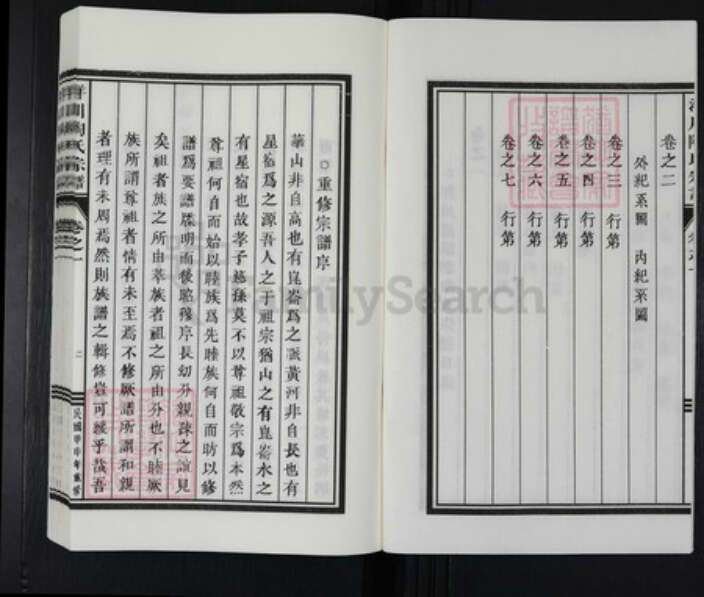 卷之二
外紀系圖 內紀系圖
卷之三 行第
卷之四 行第
卷之五 行第
卷之六 行第
卷之七 行第
○重修宗譜序
華山非自高也有崑崙為之派黃河非自長也有
星宿為之源吾人之于祖宗猶山之有崑崙水之
有星宿也故孝子慈孫莫不以尊祖敬宗為本然
尊祖何自而始以睦族為先睦族何自而昉以修
譜為要譜牒明而後昭穆序長幼分親疎之誼見
矣祖者族之所由莘族者祖之所由分也不睦厥
族所謂尊祖者情有未至焉不修厥譜所謂和親
者理有未周焉然則族譜之輯修豈可緩乎哉吾
卷之一
二
民國甲申年重修
FamilySearch